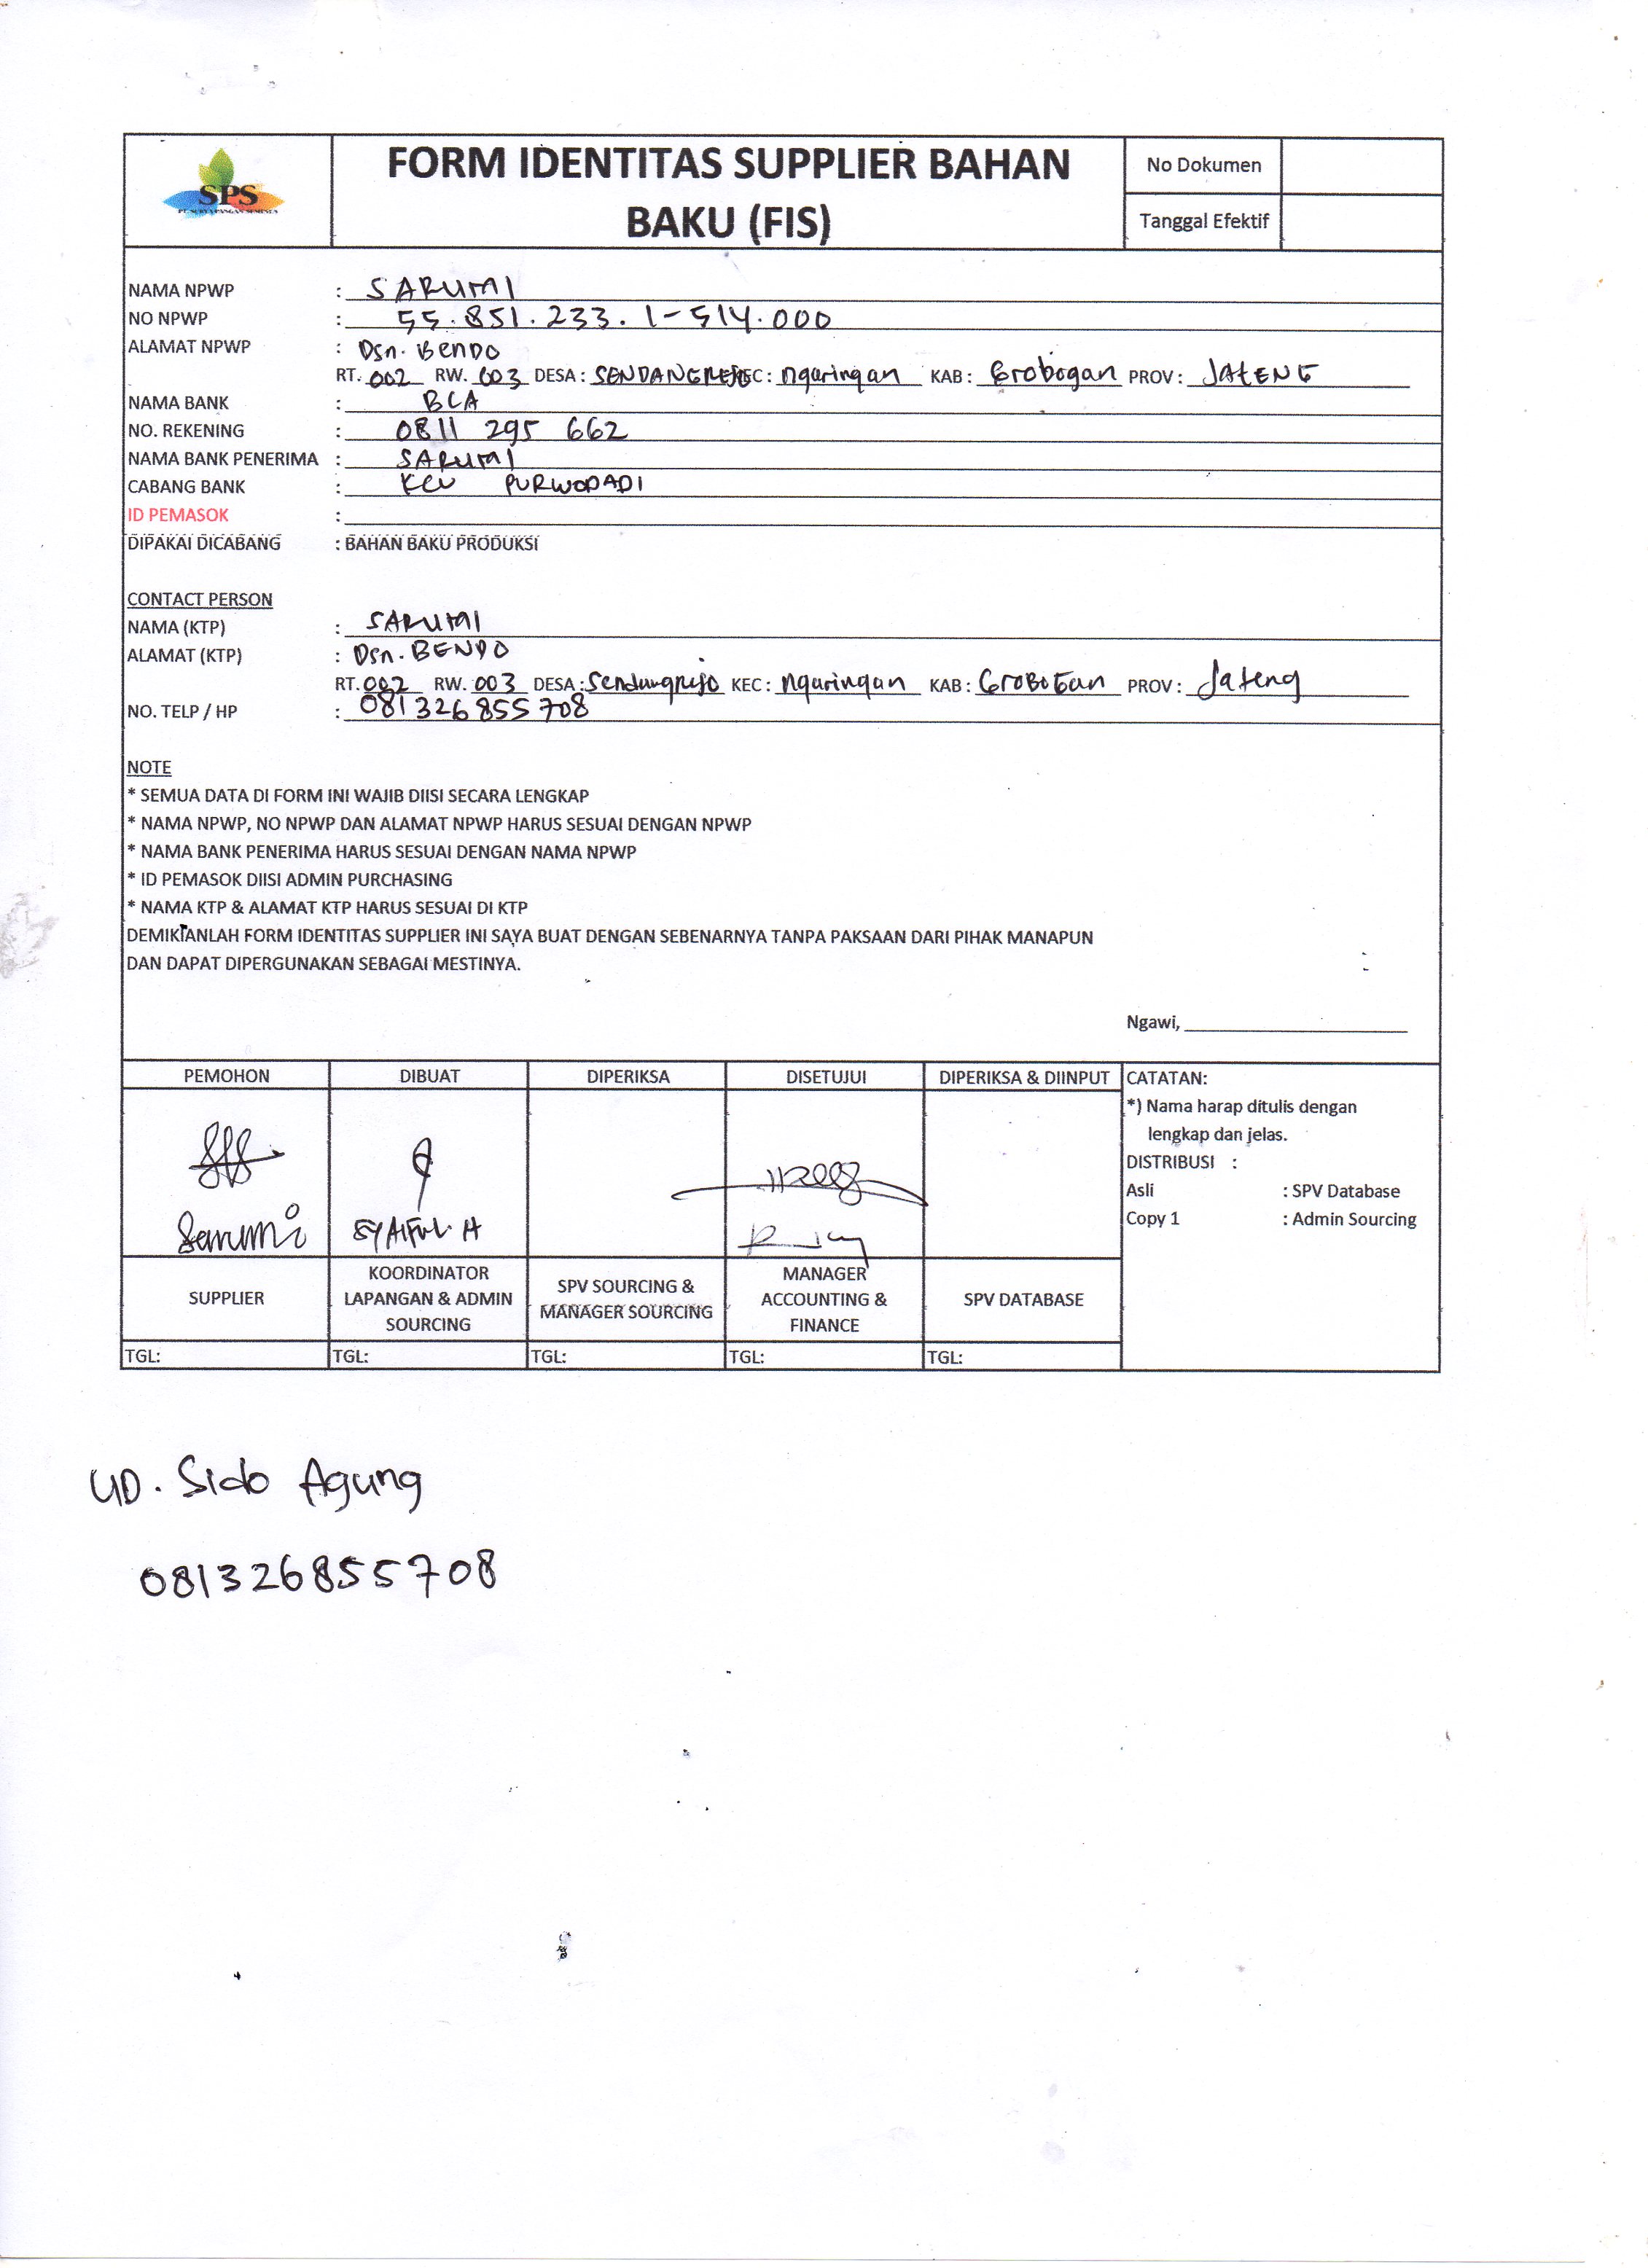 SPS
PT. SURYA PANGAN SEMESTA
FORM IDENTITAS SUPPLIER BAHAN
BAKU (FIS)
No Dokumen
Tanggal Efektif
NAMA NPWP : SARUMI
NO NPWP : 55.851.233.1-514.000
ALAMAT NPWP : Dsn. Bendo
RT. 002 RW. 003 DESA : SENDANGREJO KEC : Ngaringan KAB : Grobogan PROV : JATENG
NAMA BANK : BCA
NO. REKENING : 0811 295 662
NAMA BANK PENERIMA : SARUMI
CABANG BANK : KCU PURWODADI
ID PEMASOK :
DIPAKAI DICABANG : BAHAN BAKU PRODUKSI
CONTACT PERSON
NAMA (KTP) : SARUMI
ALAMAT (KTP) : Dsn. BENDO
RT. 002 RW. 003 DESA : Sendangrejo KEC : Ngaringan KAB : GROBOGAN PROV : Jateng
NO. TELP / HP : 081326855708
NOTE
* SEMUA DATA DI FORM INI WAJIB DIISI SECARA LENGKAP
* NAMA NPWP, NO NPWP DAN ALAMAT NPWP HARUS SESUAI DENGAN NPWP
* NAMA BANK PENERIMA HARUS SESUAI DENGAN NAMA NPWP
* ID PEMASOK DIISI ADMIN PURCHASING
* NAMA KTP & ALAMAT KTP HARUS SESUAI DI KTP
DEMIKIANLAH FORM IDENTITAS SUPPLIER INI SAYA BUAT DENGAN SEBENARNYA TANPA PAKSAAN DARI PIHAK MANAPUN
DAN DAPAT DIPERGUNAKAN SEBAGAI MESTINYA.
Ngawi,
PEMOHON DIBUAT DIPERIKSA DISETUJUI DIPERIKSA & DIINPUT CATATAN:
*) Nama harap ditulis dengan
lengkap dan jelas.
DISTRIBUSI :
Asli : SPV Database
Copy 1 : Admin Sourcing
Sarumi SYAIFUL. H
SUPPLIER
KOORDINATOR
LAPANGAN & ADMIN
SOURCING
SPV SOURCING &
MANAGER SOURCING
MANAGER
ACCOUNTING &
FINANCE
SPV DATABASE
TGL: TGL: TGL: TGL: TGL:
UD. Sido Agung
081326855708